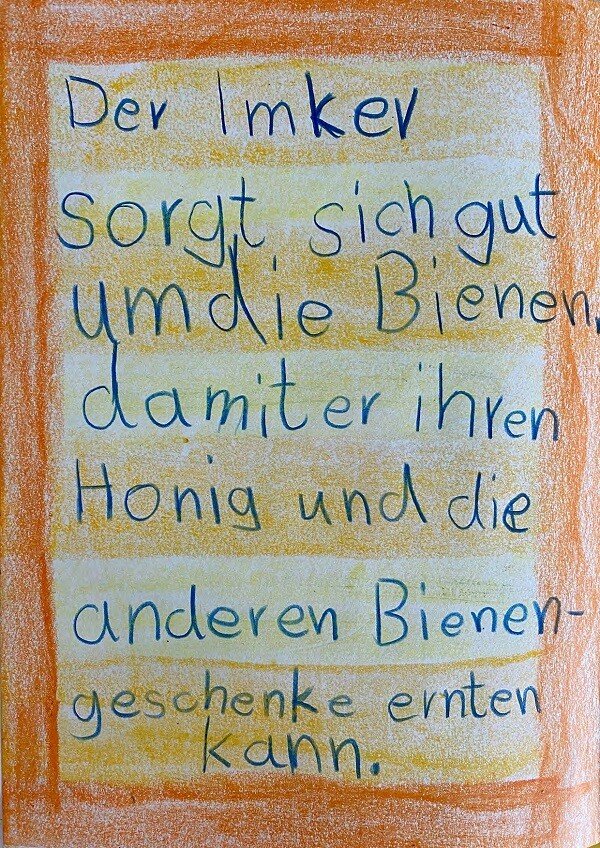 Der Imker
sorgt sich gut
um die Bienen,
damit er ihren
Honig und die
anderen Bienen-
geschenke ernten
kann.